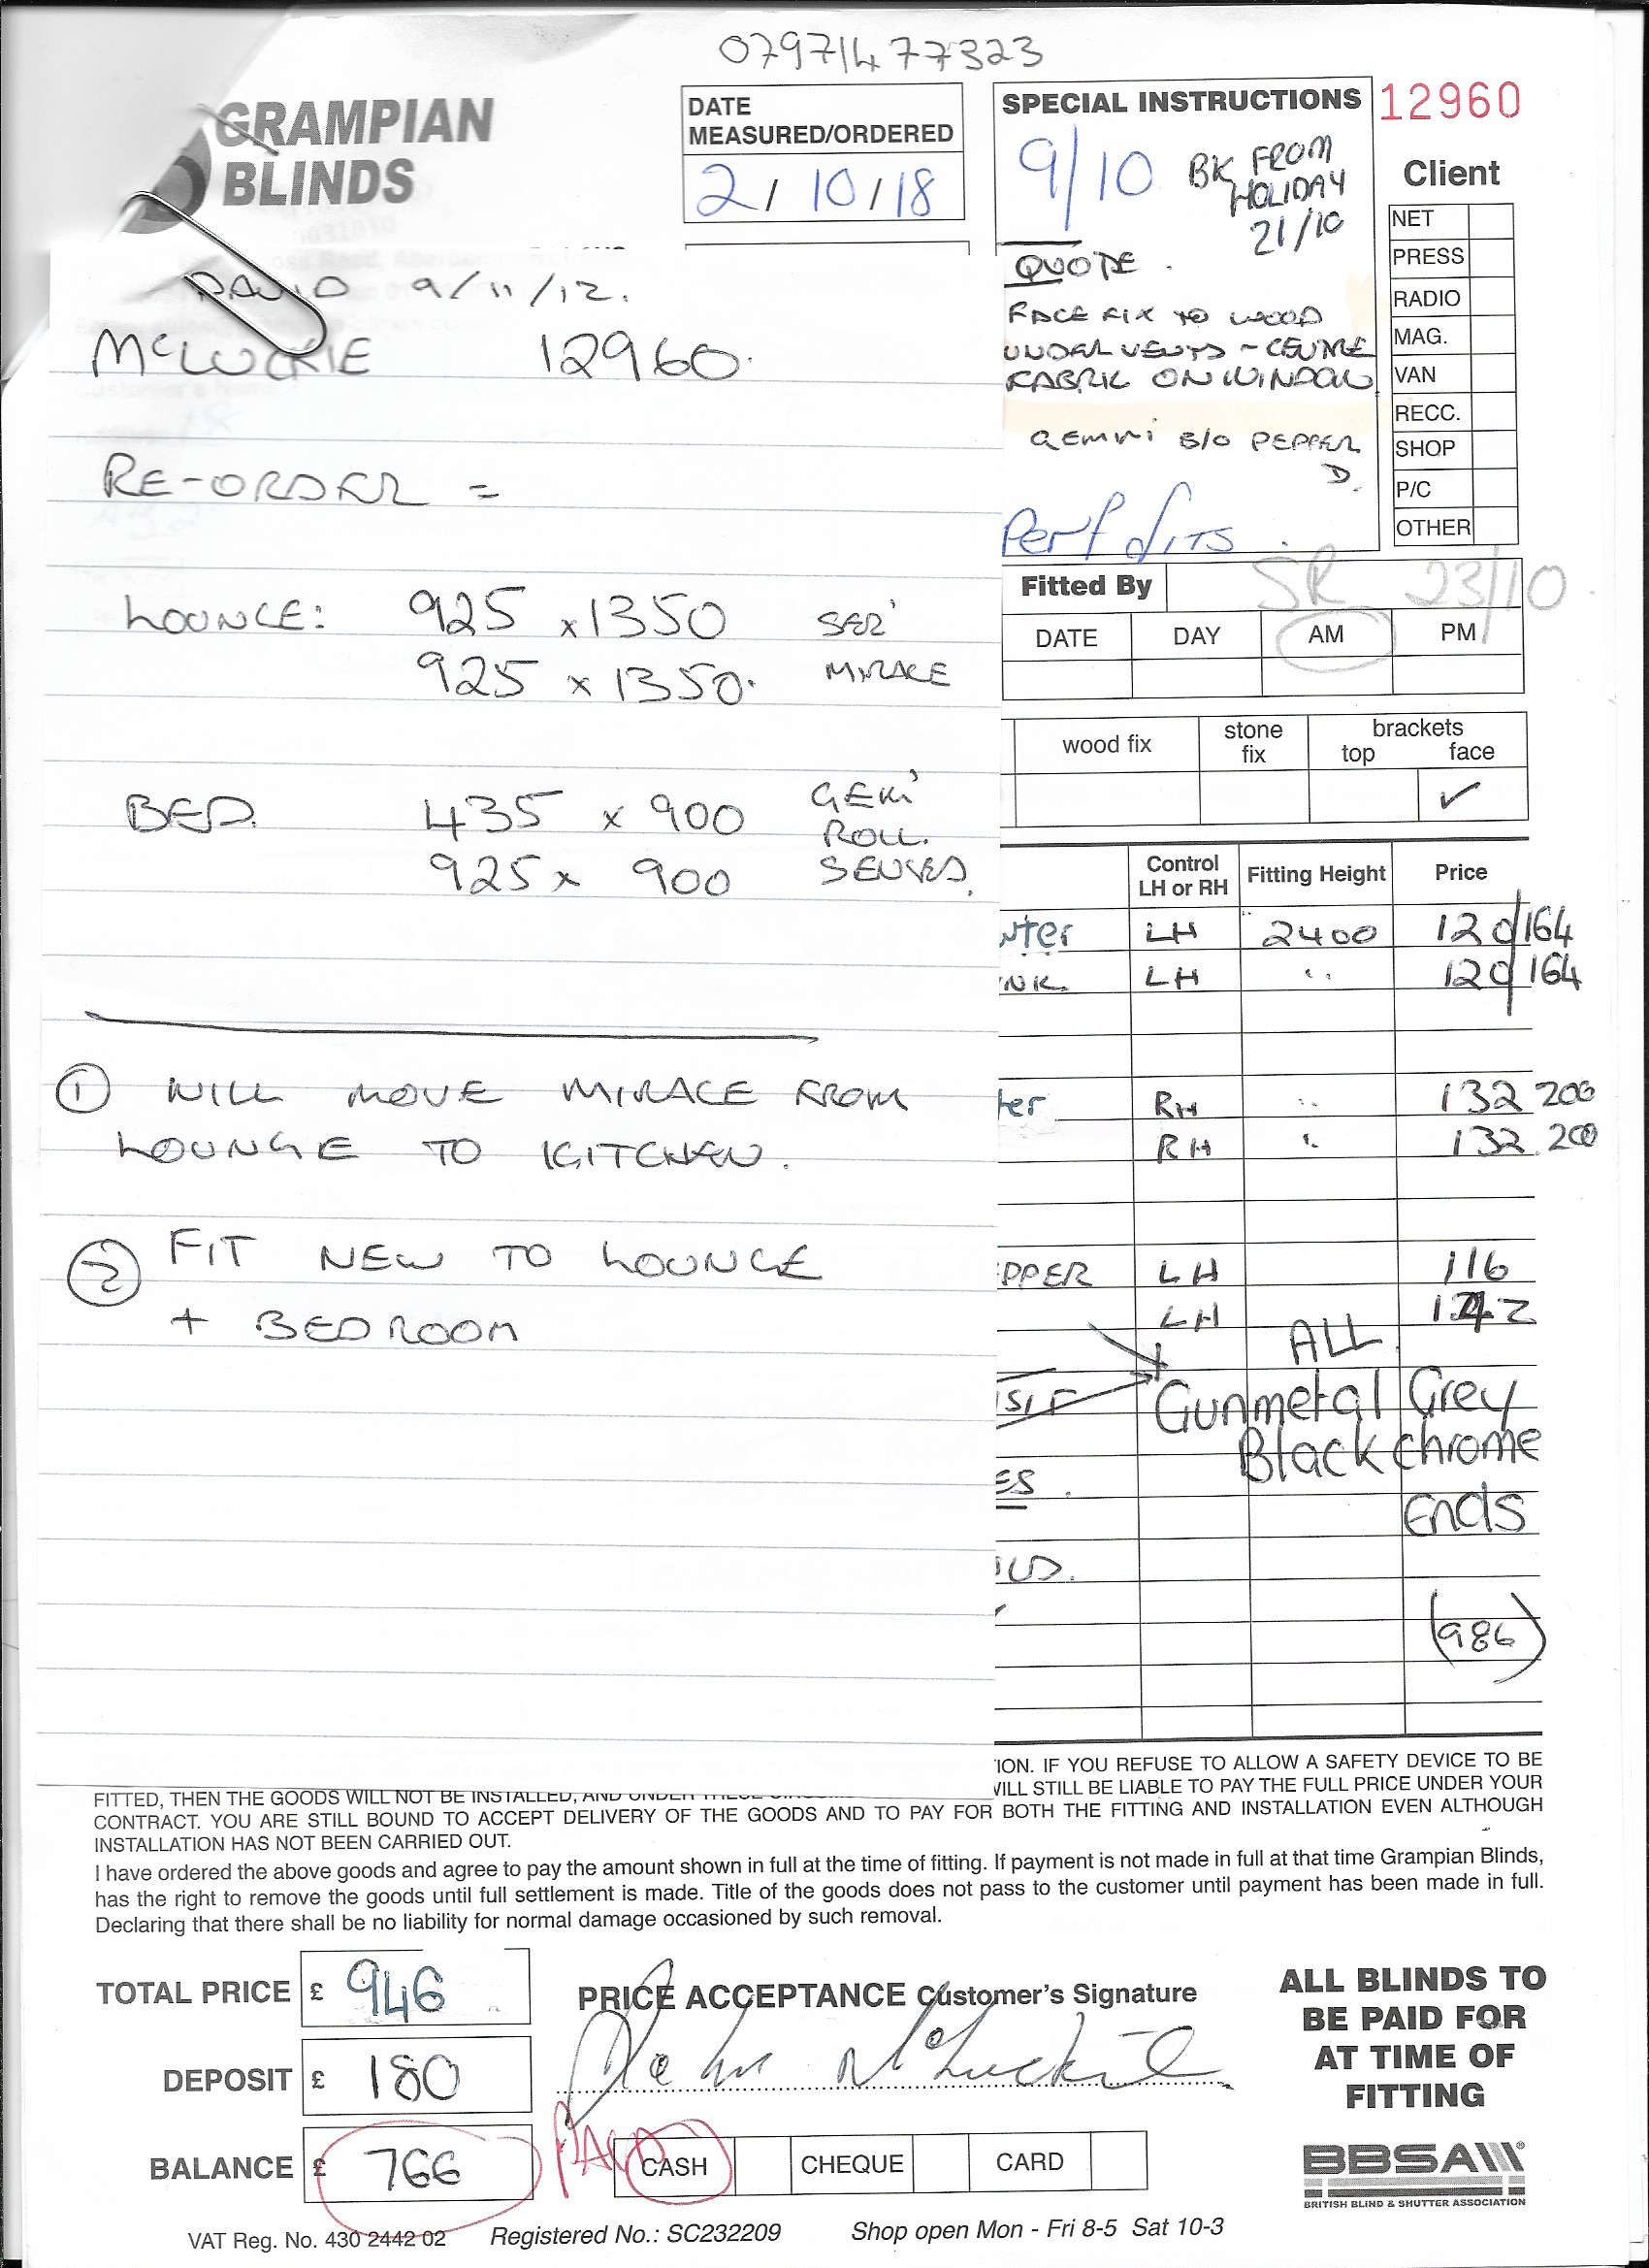 07971477323
GRAMPIAN
BLINDS
DATE
MEASURED/ORDERED
2/10/18
SPECIAL INSTRUCTIONS
12960
9/10 BK FROM
HOLIDAY
21/10
QUOTE.
FACE FIX TO WOOD
UNDER VENTS - CENTRE
FABRIC ON WINDOW
GEMINI B/O PEPPER
D.
Perf fits.
Client
NET
PRESS
RADIO
MAG.
VAN
RECC.
SHOP
P/C
OTHER
DAVID 9/11/12.
McLUCKIE 12960.
RE-ORDER =
LOUNGE: 925 x 1350
925 x 1350. MIRAGE
BED. 435 x 900
ROLL.
925 x 900 SENSES.
① WILL MOVE MIRAGE FROM
LOUNGE TO KITCHEN.
② FIT NEW TO LOUNGE
+ BEDROOM
Fitted By SR 23/10.
DATE DAY AM PM
wood fix stone fix brackets top face
✓
Control LH or RH Fitting Height Price
nter LH 2400 120/164
NK. LH " 120/164
ter RH " 132 200
RH " 132.200
PPER LH 116
LH
ALL
Gunmetal Grey
Black chrome
Ends
ES.
(986)
ION. IF YOU REFUSE TO ALLOW A SAFETY DEVICE TO BE
FITTED, THEN THE GOODS WILL NOT BE INSTALLED, AND UNDER THESE WILL STILL BE LIABLE TO PAY THE FULL PRICE UNDER YOUR
CONTRACT. YOU ARE STILL BOUND TO ACCEPT DELIVERY OF THE GOODS AND TO PAY FOR BOTH THE FITTING AND INSTALLATION EVEN ALTHOUGH
INSTALLATION HAS NOT BEEN CARRIED OUT.
I have ordered the above goods and agree to pay the amount shown in full at the time of fitting. If payment is not made in full at that time Grampian Blinds,
has the right to remove the goods until full settlement is made. Title of the goods does not pass to the customer until payment has been made in full.
Declaring that there shall be no liability for normal damage occasioned by such removal.
TOTAL PRICE £ 946
PRICE ACCEPTANCE Customer's Signature
John McLuckie
DEPOSIT £ 180
BALANCE £ 766
PAID
CASH CHEQUE CARD
ALL BLINDS TO
BE PAID FOR
AT TIME OF
FITTING
BBSA
BRITISH BLIND & SHUTTER ASSOCIATION
VAT Reg. No. 430 2442 02 Registered No.: SC232209 Shop open Mon - Fri 8-5 Sat 10-3